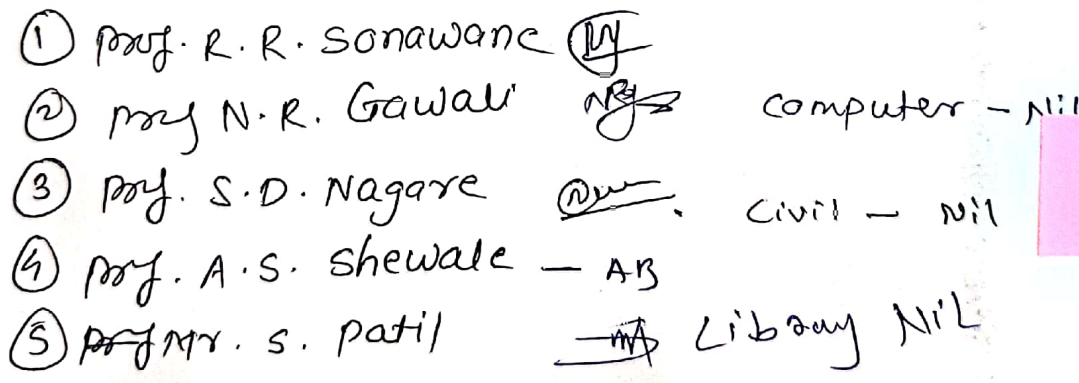 ① Prof. R. R. Sonawane
② Prof N. R. Gawali Computer - Nil
③ Prof. S. D. Nagare Civil - Nil
④ Prof. A. S. Shewale - AB
⑤ Mr. S. Patil Library NiL